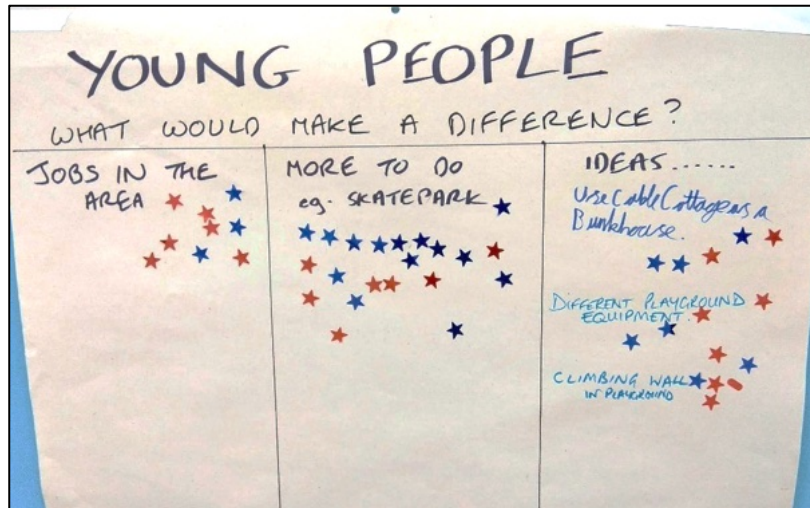 YOUNG PEOPLE
WHAT WOULD MAKE A DIFFERENCE?
JOBS IN THE
AREA
MORE TO DO
eg. SKATEPARK
IDEAS......
Use Cable Cottage as a
Bunkhouse.
DIFFERENT PLAYGROUND
EQUIPMENT.
CLIMBING WALL
IN PLAYGROUND